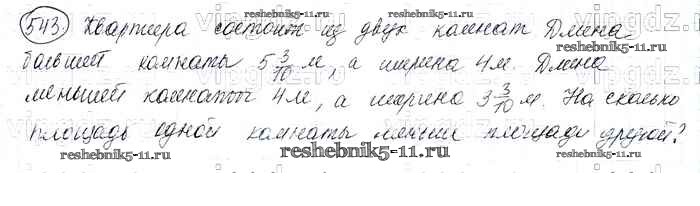 543. Квартира состоит из двух комнат Длина
большей комнаты 5 3/10 м, а ширина 4м. Длина
меньшей комнаты 4м, а ширина 3 3/10 м. На сколько
площадь одной комнаты меньше площади другой?
reshebnik5-11.ru
reshebnik5-11.ru
reshebnik5-11.ru
reshebnik5-11.ru
reshebnik5-11.ru